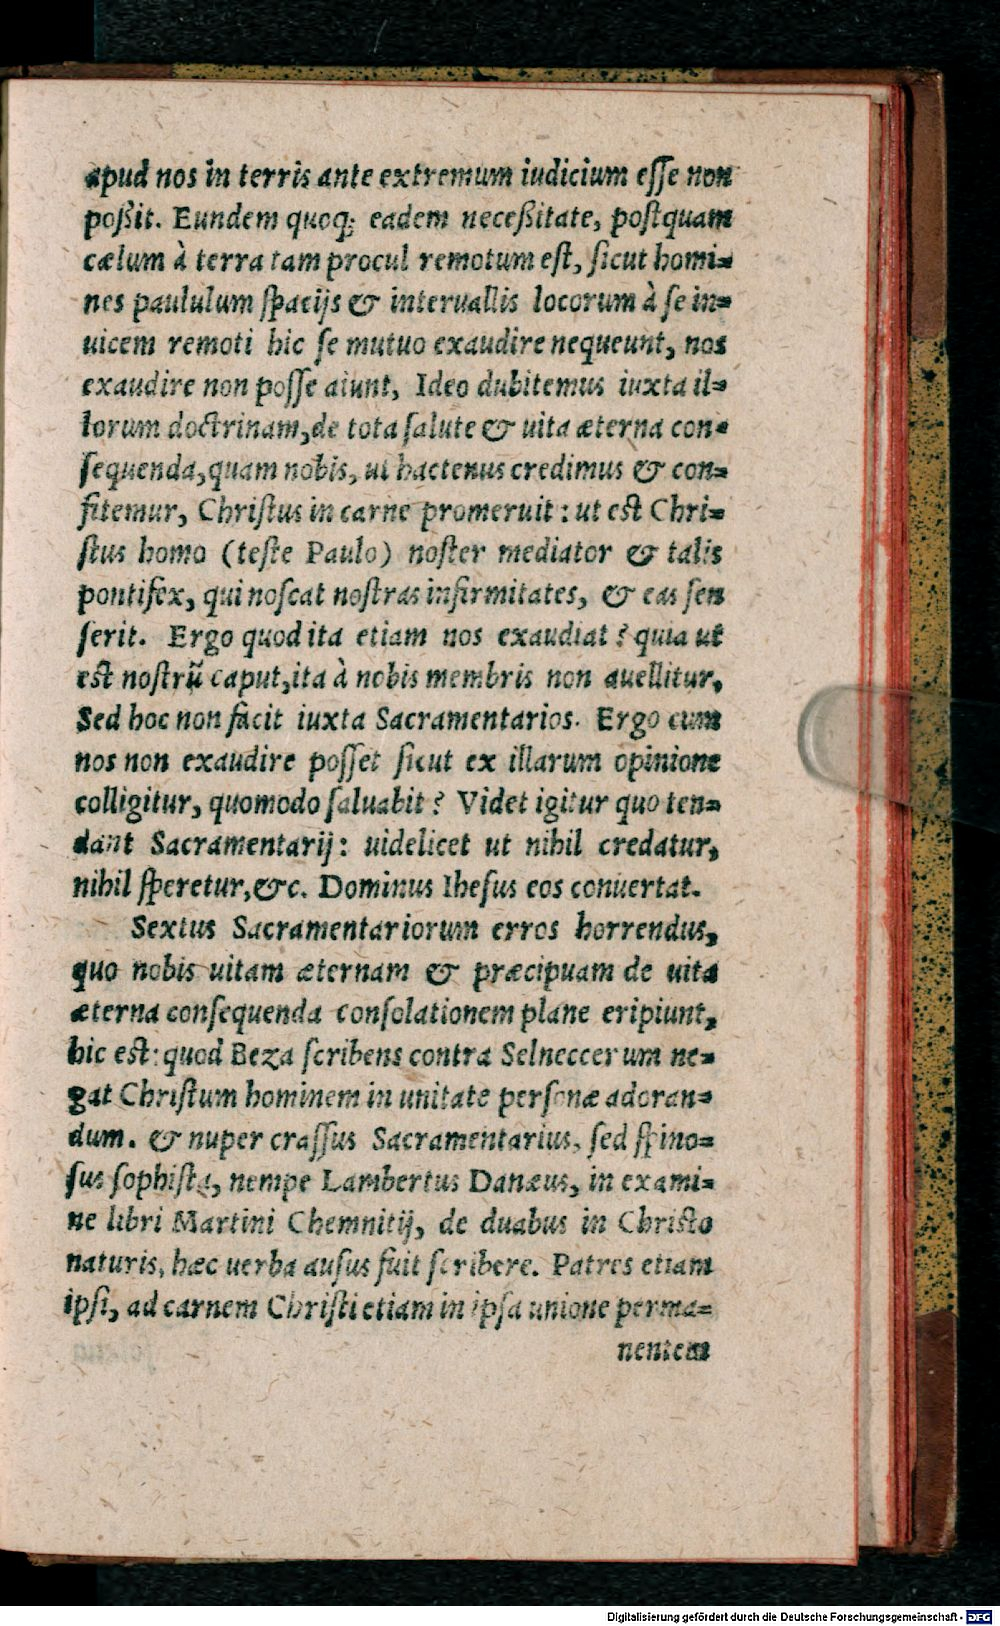 apud nos in terris ante extremum iudicium esse non
poßit. Eundem quoq; eadem neceßitate, postquam
cælum à terra tam procul remotum est, sicut homi=
nes paululum spacijs & interuallis locorum à se in=
uicem remoti hic se mutuo exaudire nequeunt, nos
exaudire non posse aiunt, Ideo dubitemus iuxta il=
lorum doctrinam, de tota salute & uita æterna con=
sequenda, quam nobis, ut hactenus credimus & con=
fitemur, Christus in carne promeruit: ut est Chri=
stus homo (teste Paulo) noster mediator & talis
pontifex, qui noscat nostras infirmitates, & eas sen
serit. Ergo quod ita etiam nos exaudiat? quia ut
est nostrũ caput, ita à nobis membris non auellitur,
Sed hoc non facit iuxta Sacramentarios. Ergo cum
nos non exaudire posset sicut ex illarum opinione
colligitur, quomodo saluabit? Videt igitur quo ten=
dant Sacramentarij: uidelicet ut nihil credatur,
nihil speretur, &c. Dominus Ihesus eos conuertat.
Sextus Sacramentariorum error horrendus,
quo nobis uitam æternam & præcipuam de uita
æterna consequenda consolationem plane eripiunt,
hic est: quod Beza scribens contra Selneccerum ne=
gat Christum hominem in unitate personæ adoran=
dum. & nuper crassus Sacramentarius, sed spino=
sus sophista, nempe Lambertus Danæus, in exami=
ne libri Martini Chemnitij, de duabus in Christo
naturis, hæc uerba ausus fuit scribere. Patres etiam
ipsi, ad carnem Christi etiam in ipsa unione perma=
nentem
Digitalisierung gefördert durch die Deutsche Forschungsgemeinschaft - DFG